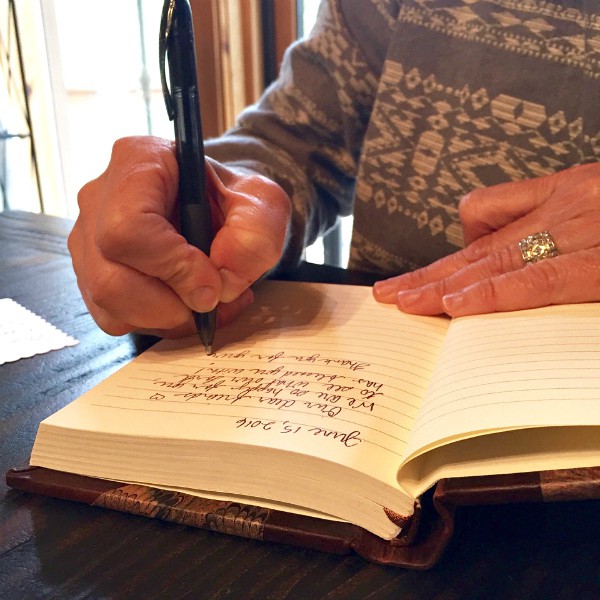 June 15, 2016
Our dear friends ♡
We are so happy for you
to see what our Lord
has blessed you with!
Thank you for giving